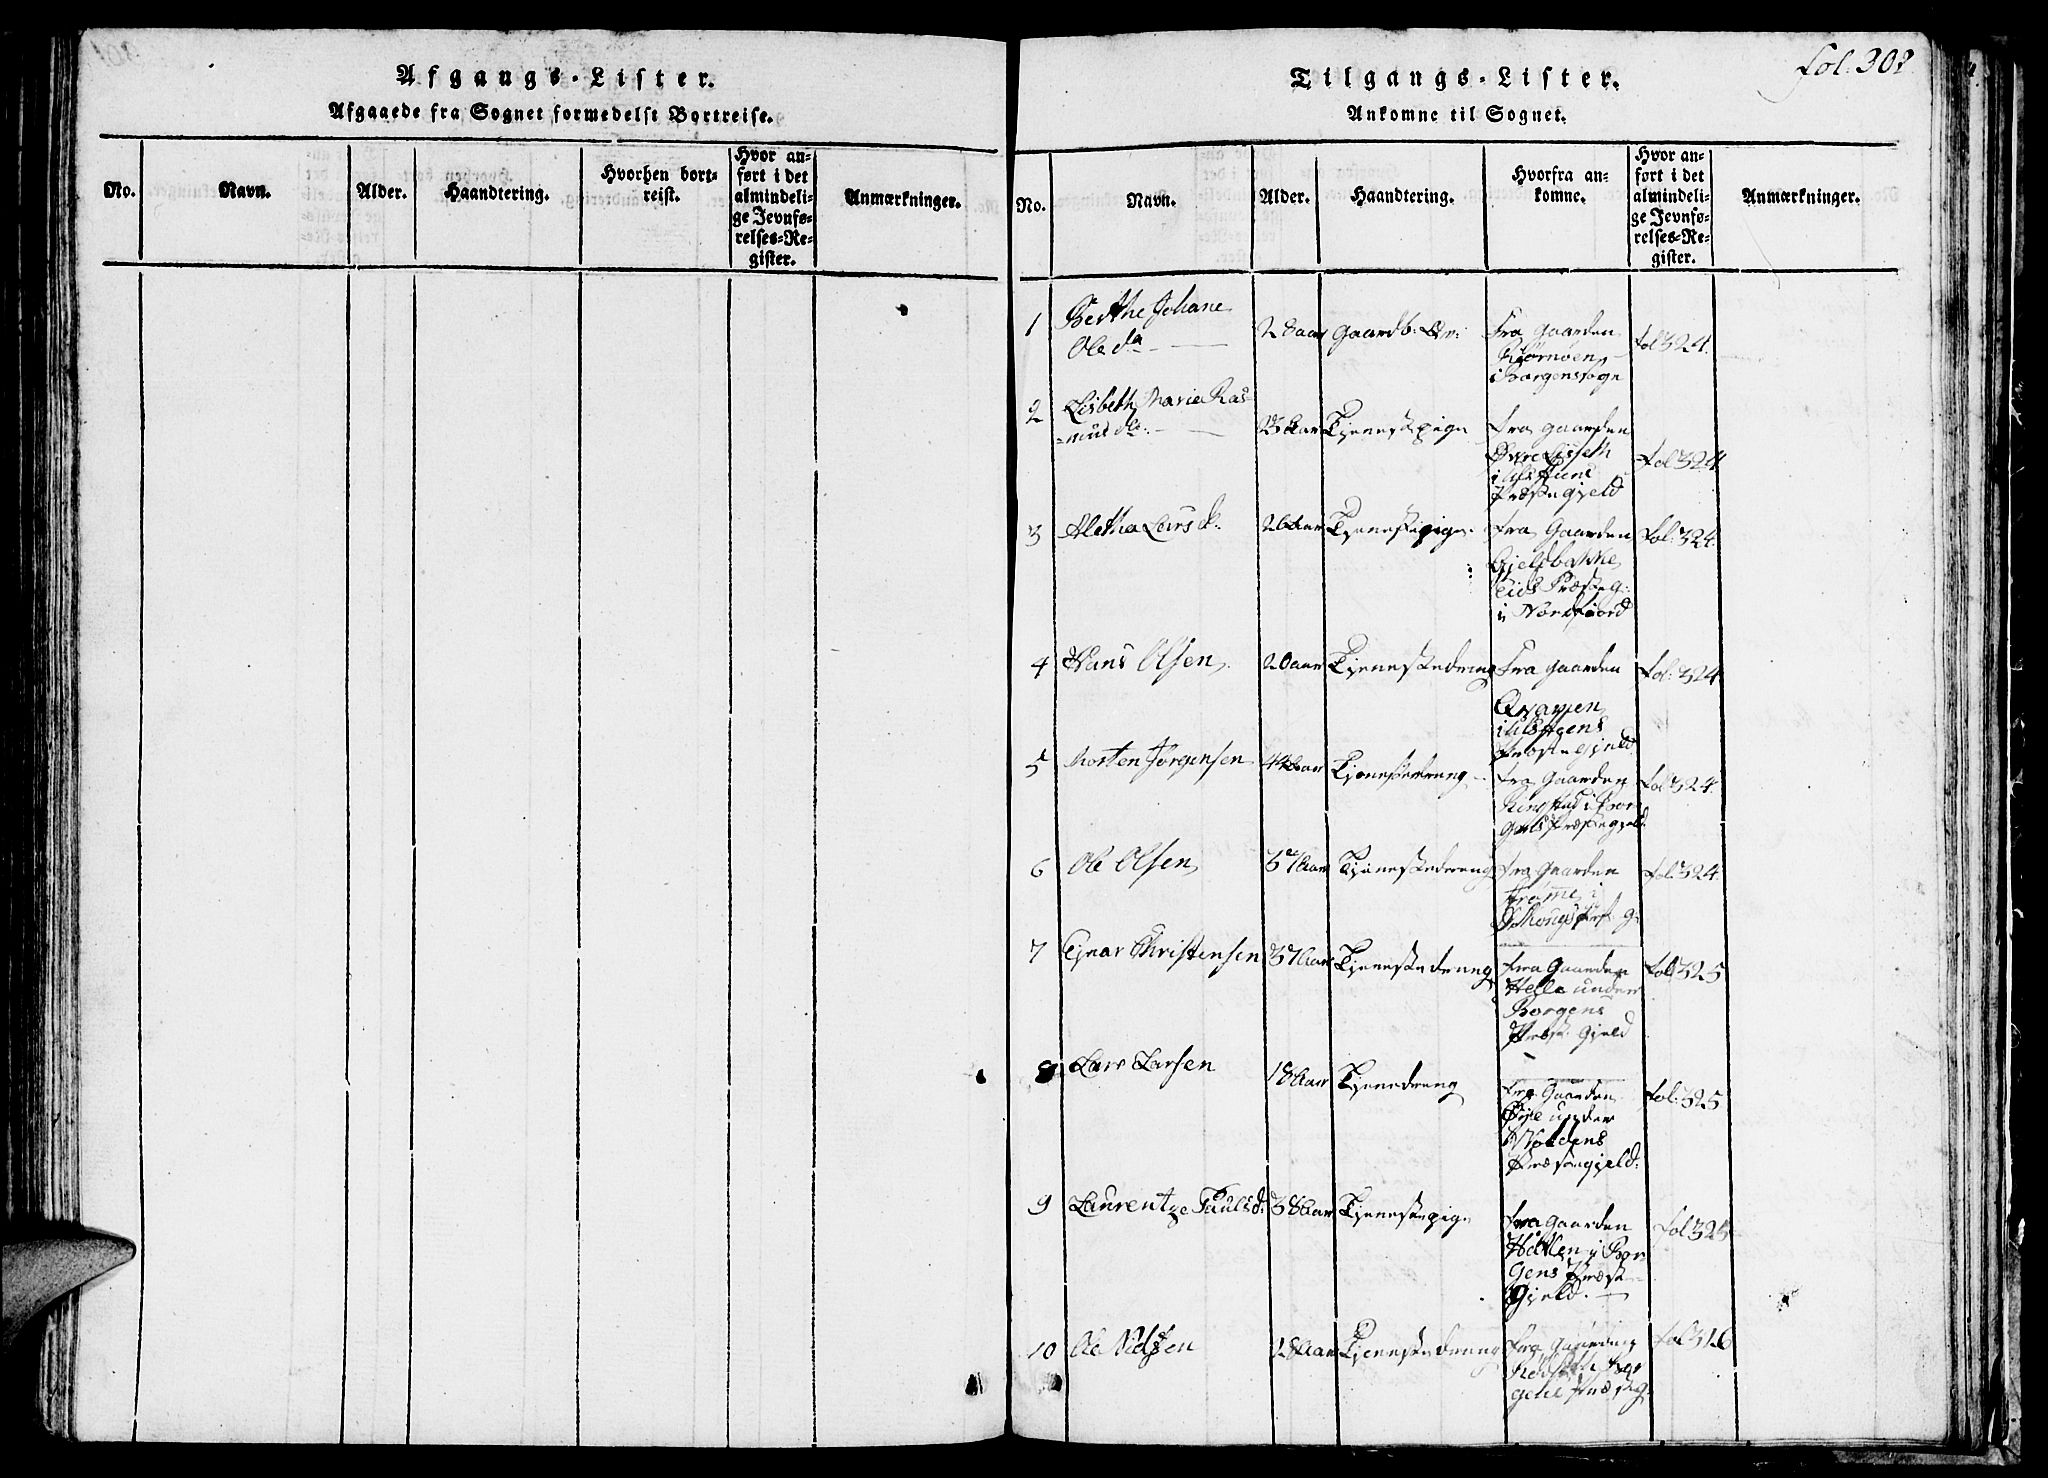 Afgangs-Lister.
Afgaaede fra Sognet formedelst Bortreise.
No.
Navn.
Alder.
Haandtering.
Hvorhen bort-
reist.
Hvor an-
ført i det
almindeli-
ge Jevnfø-
relses-Re-
gister.
Anmærkninger.
fol. 302
Tilgangs-Lister.
Ankomne til Sognet.
No.
Navn.
Alder.
Haandtering.
Hvorfra an-
komne.
Hvor an-
ført i det
almindeli-
ge Jevnfø-
relses-Re-
gister.
Anmærkninger.
1 Berthe Johane
Ole da
Gaardb:
Fra Gaarden
i Borgens sogn
fol 324.
2 Lisbeth Maria Ras-
=mus
Tjenestepige
fra Gaarden
Øvre Lisseth
i
Præstegjeld
fol 324
3 Aletha Lars d.
26 aar Tjenestepige
fra Gaarden
Gjeldbakke
Eids Præsteg:
i Nordfiord
fol: 324.
4 Hans Olsen
20 aar Tjenestedreng
Fra Gaarden
i
Præstegjeld
fol: 324
5 Morten Jørgensen
Tjenestedreng
fra Gaarden
Ringstad i Bor-
gens Præstegjeld.
fol 324.
6 Ole Olsen
Tjenestedreng
fra Gaarden
i
fol: 324.
7 Ejnar Christensen
37 aar Tjenestedreng
fra Gaarden
Helle under
Borgens
Præst Gjeld
fol 325
8 Lars Larsen
18 aar Tjenedreng
fra Gaarden
Øye under
Præstegjeld.
fol: 325
9 Laurentze Paulsd.
38 aar Tjenestepige
fra Gaarden
i Bor-
gens Præst
Gjeld.
fol 325
10 Ole Nilssen
Tjenestedreng
fra Gaarden
Præsteg.
fol 326